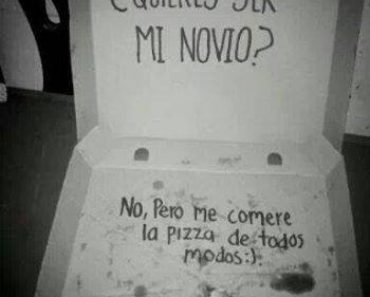 ¿QUIERES SER
MI NOVIO?
No, Pero me comere
la pizza de todos
modos:).